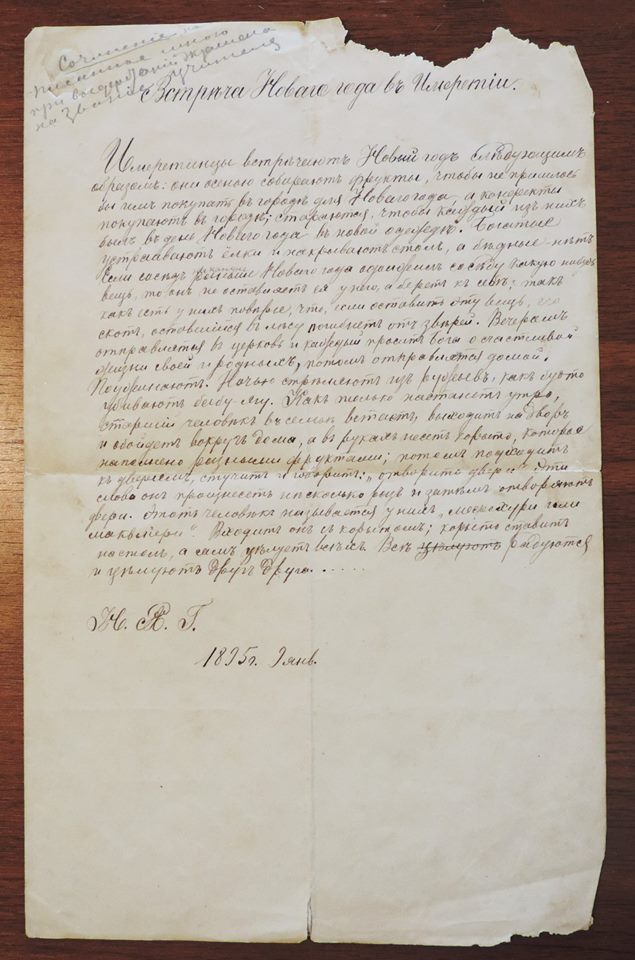 Сочиненіе на
писанное мною
при выдержаніи экзамена
на званіе учителя
Встрѣча Новаго года въ Имеретіи.
Имеретинцы встрѣчаютъ Новый годъ слѣдующимъ
образомъ: они осенью собираютъ фрукты, чтобы не пришлось
бы имъ покупать въ городѣ для Новаго года, а конфекты
покупаютъ въ городѣ; стараются, чтобы каждый изъ нихъ
былъ въ день Новаго года въ новой одеждѣ. Богатые
устраиваютъ ёлки и накрываютъ столъ, а бѣдные нѣтъ
Если сосѣдъ раньше Новаго года одолжилъ сосѣду какую нибудь
вещь, то онъ не оставляетъ ея у него, а беретъ къ себѣ: такъ
какъ есть у нихъ повѣрье, что, если оставитъ эту вещь, его
скотъ, оставшійся въ лѣсу погибнетъ отъ звѣрей. Вечеромъ
отправляются въ церковь и каждый проситъ Бога о счастливой
жизни своей и родныхъ, потомъ отправляются домой.
Поужинаютъ. Ночью стрѣляютъ изъ ружьевъ, какъ будто
убиваютъ бабу ягу. Какъ только настанетъ утро,
старшій человѣкъ въ семьѣ встаетъ, выходитъ на дворъ
и обойдетъ вокругъ дома, а въ рукахъ несетъ корыто, которое
наполнено разными фруктами; потомъ подходитъ
къ дверямъ, стучитъ и говоритъ: „отворите двери“. Эти
слова онъ произнесетъ нѣсколько разъ и затѣмъ отворяютъ
двери. Этотъ человѣкъ называется у нихъ „меркури или
маквлери“. Входитъ онъ съ корытомъ; корыто ставитъ
на столъ, а самъ цѣлуетъ всѣхъ. Всѣ цѣлуютъ радуются
и цѣлуютъ другъ друга......
Г.
1895г. 9 янв.